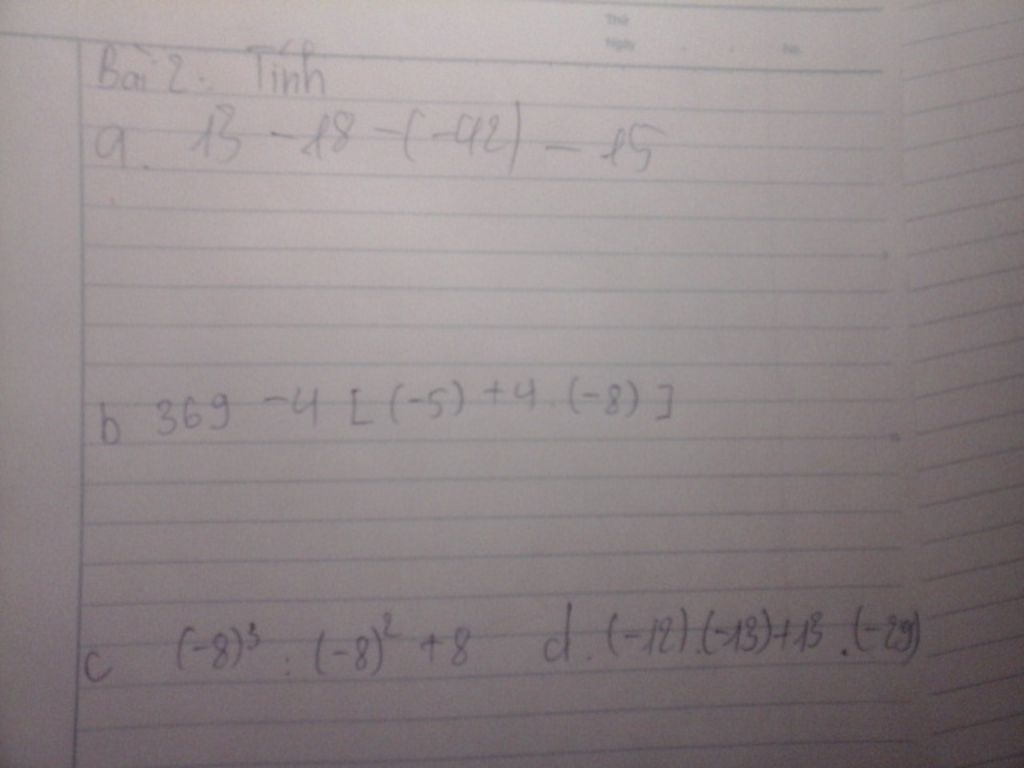 Thứ
Ngày . . No.
Bài 2: Tính
a. 13 - 18 - (-42) - 15
b 369 - 4 [ (-5) + 4 . (-8) ]
c (-8)³ : (-8)² + 8 d. (-12).(-13)+13 .(-29)